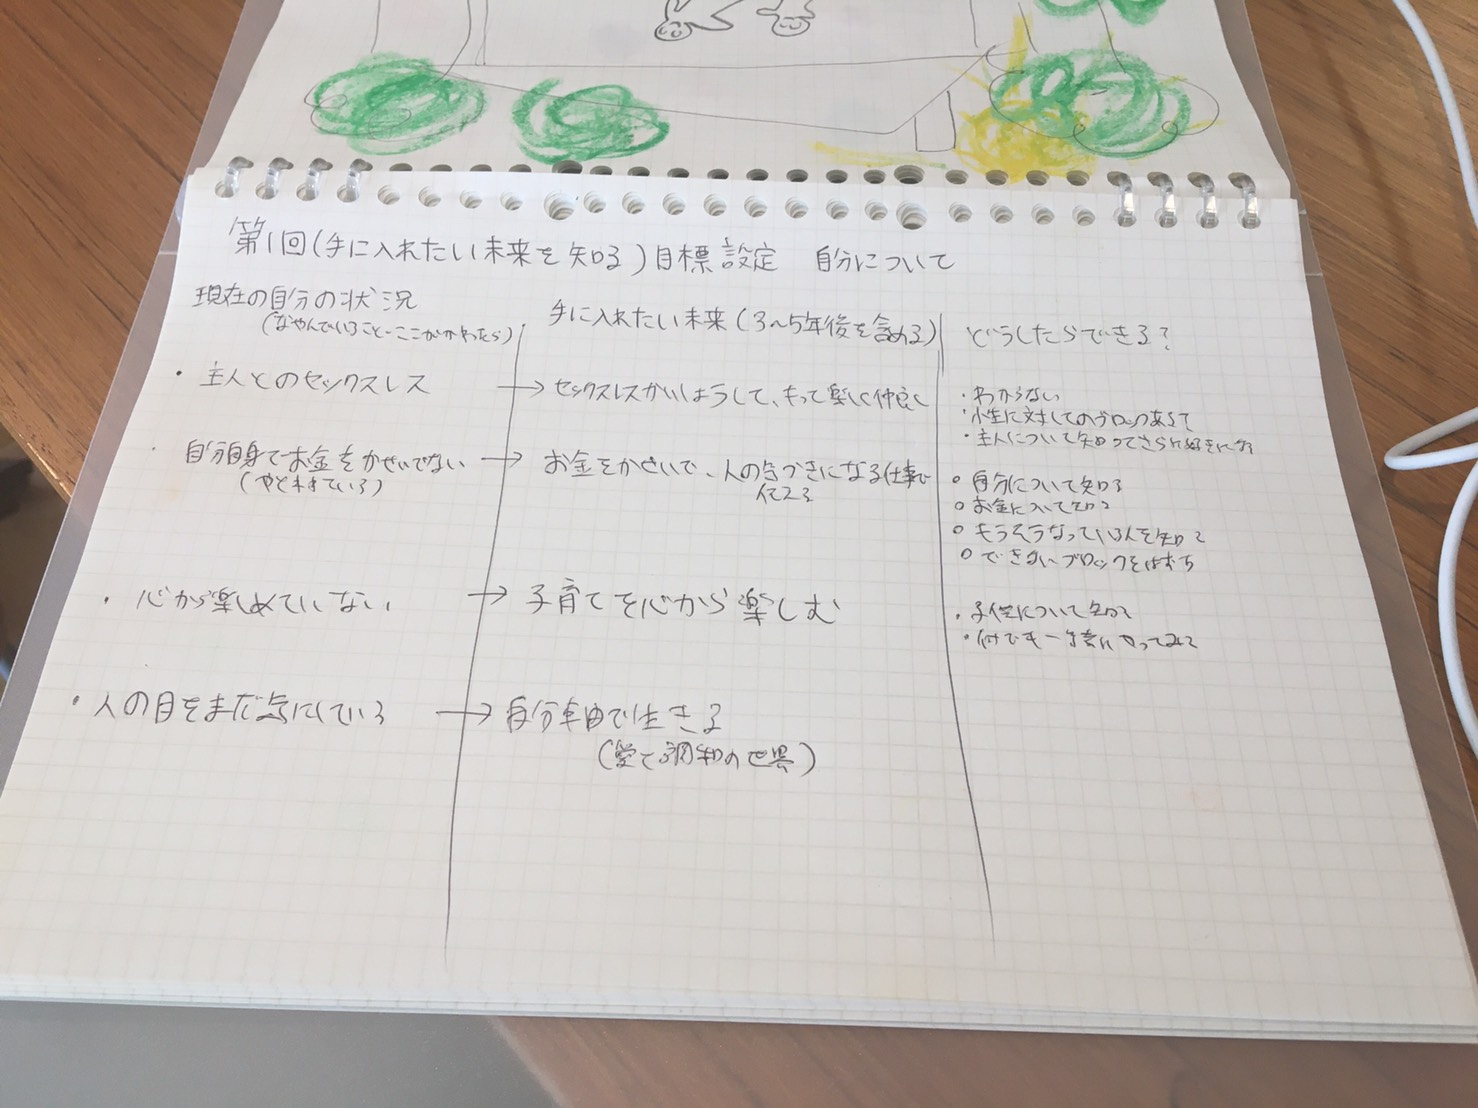 第1回(手に入れたい未来を知る)目標設定 自分について
現在の自分の状況
(なやんでいること・ここがかわったら)
手に入れたい未来(3〜5年後を含める)
どうしたらできる?
・主人とのセックスレス
→セックスレスかいしょうして、もって楽しく仲良く
・わからない
に対してのブロックあるて
・主人について知ってさらに好きにな
・自分自身でお金をかせいでない
(やとわれている)
→お金をかせいで、人の気づきになる仕事で
○自分について知る
○お金について知る
○もうそうなっている人を知る
○できないブロックをはずす
・心から楽しめていない
→子育てを心から楽しむ
・子供について知る
・何でも一緒にやってみる
・人の目をまだ気にしている
→自分自由で生きる
(愛て調和の世界)